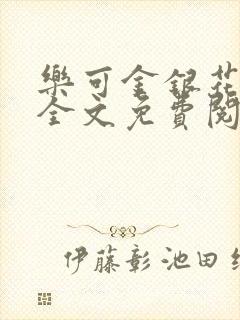 樂可金銀花
全文免費閱
伊藤彰池田